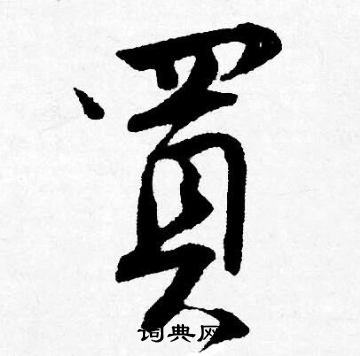 買
词典网